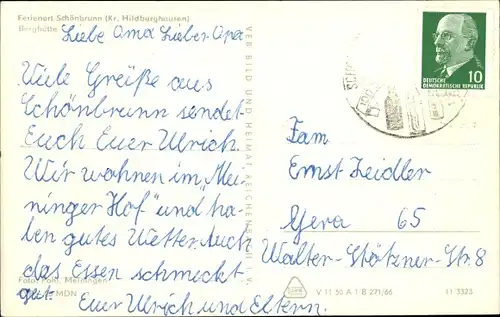 Ferienort Schönbrunn (Kr. Hildburghausen)
Berghütte
Liebe Oma Lieber Opa
Viele Grüße aus
Schönbrunn sendet
Euch Euer Ulrich.
Wir wohnen im „Mei-
ninger Hof" und ha-
ben gutes Wetter. Auch
das Essen schmeckt
gut. Euer Ulrich und Eltern.
Foto: Pohl, Meiningen
MDN
VEB BILD UND HEIMAT REICHENBACH I. V.
V 11 50 A 1 B 271/66
11 3325
DEUTSCHE
DEMOKRATISCHE REPUBLIK
10
Fam
Ernst Zeidler
Gera 65
Walter-Stötzner-Str. 8